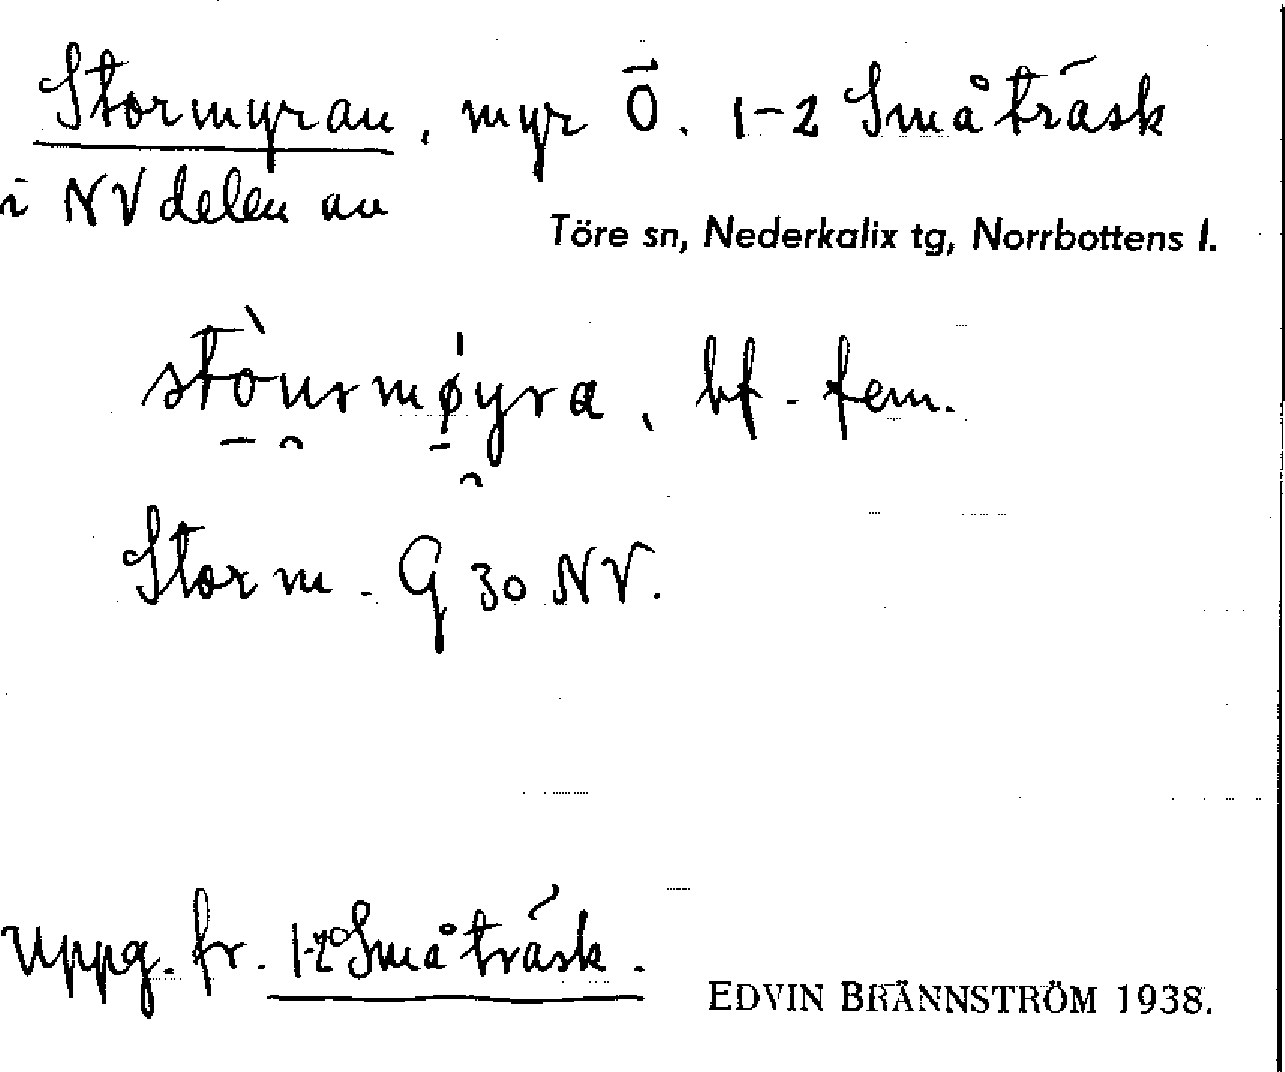 Stormyran, myr Ö. 1-2 Småträsk
i NV delen av
Töre sn, Nederkalix tg, Norrbottens l.
stòurmøyra, bf. fem.
Storm. G 30 NV.
Uppg. fr. 1-2 Småträsk.
EDVIN BRÄNNSTRÖM 1938.